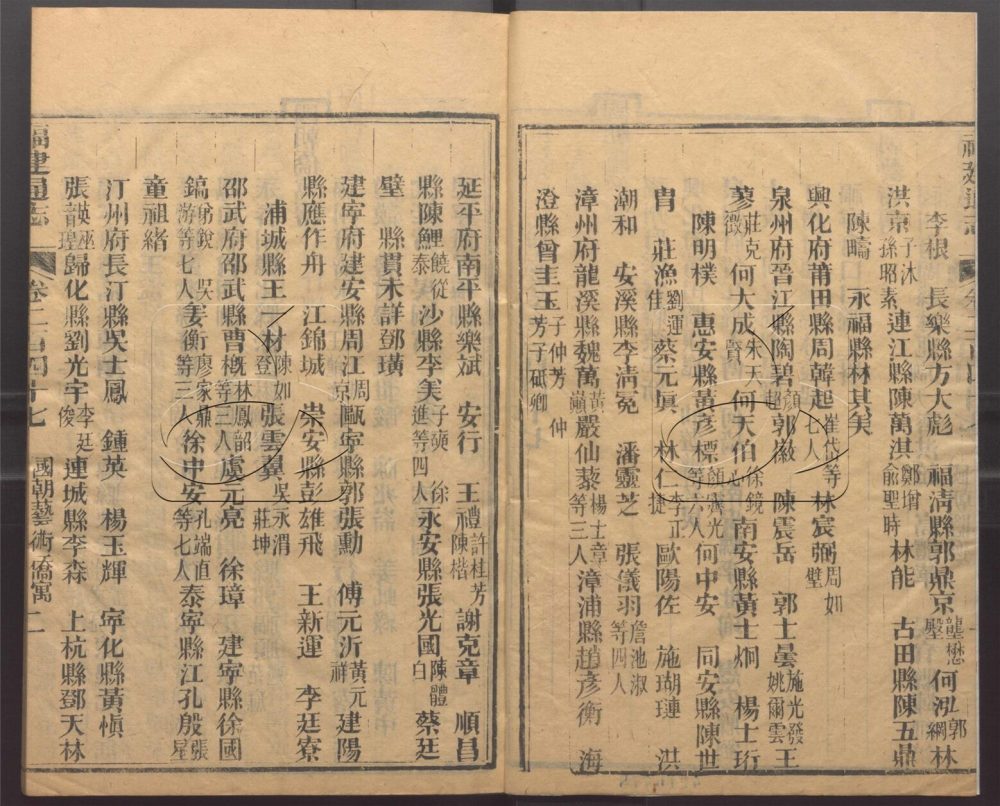 李根　長樂縣方大彪　福清縣郭鼎京壟懋何泓郭綱林
洪京子沐孫昭素連江縣陳萬淇鄭增俞聖時林能　古田縣陳五鼎
陳疇　永福縣林其美
興化府莆田縣周韓起崔岱等七人林宸弼周如璧
泉州府晉江縣陶碧顏超郭徽　陳震岳　郭士曇施光發姚爾雲王
蓼莊克微何大成朱天賢何天伯徐鏡心南安縣黃士炯　楊士珩
陳明樸　惠安縣黃彥標顏濟光等六人何中安　同安縣陳世
胄　莊漁劉運佳蔡元眞　林仁李正捷歐陽佐　施瑚璉　洪
潮和　安溪縣李清冕　潘靈芝　張儀羽詹池淑等四人
漳州府龍溪縣魏萬黃巔嚴仙藜楊士章等三人漳浦縣趙彥衡　海
澄縣曾圭玉子仲芳　仲芳子砥卿
延平府南平縣樂斌　安行　王禮許桂芳陳楷謝克章　順昌
縣陳鯉饒從泰沙縣李美子蕻　徐進等四人永安縣張光國陳體白蔡廷
壁　縣貫未詳鄧璜
建寧府建安縣周江周京甌寧縣郭張勳　傅元沂黃元祥建陽
縣應作舟　江錦城　崇安縣彭雄飛　王新運　李廷寮
浦城縣王一材陳如登張雲翼吳永渭莊坤
邵武府邵武縣曹槪林鳳韶等三人虞元亮　徐璋　建寧縣徐國
鎬躬銳　吳游等七人姜衡廖家鼐等三人徐中安孔端直等七人泰寧縣江孔殷張星
童祖緒
汀州府長汀縣吳士鳳　鍾英　楊玉輝　寧化縣黃愼
張英歸化縣劉光宇李廷俊連城縣李森　上杭縣鄧天林
福建通志　卷二百四十七　國朝藝術　僑寓　二